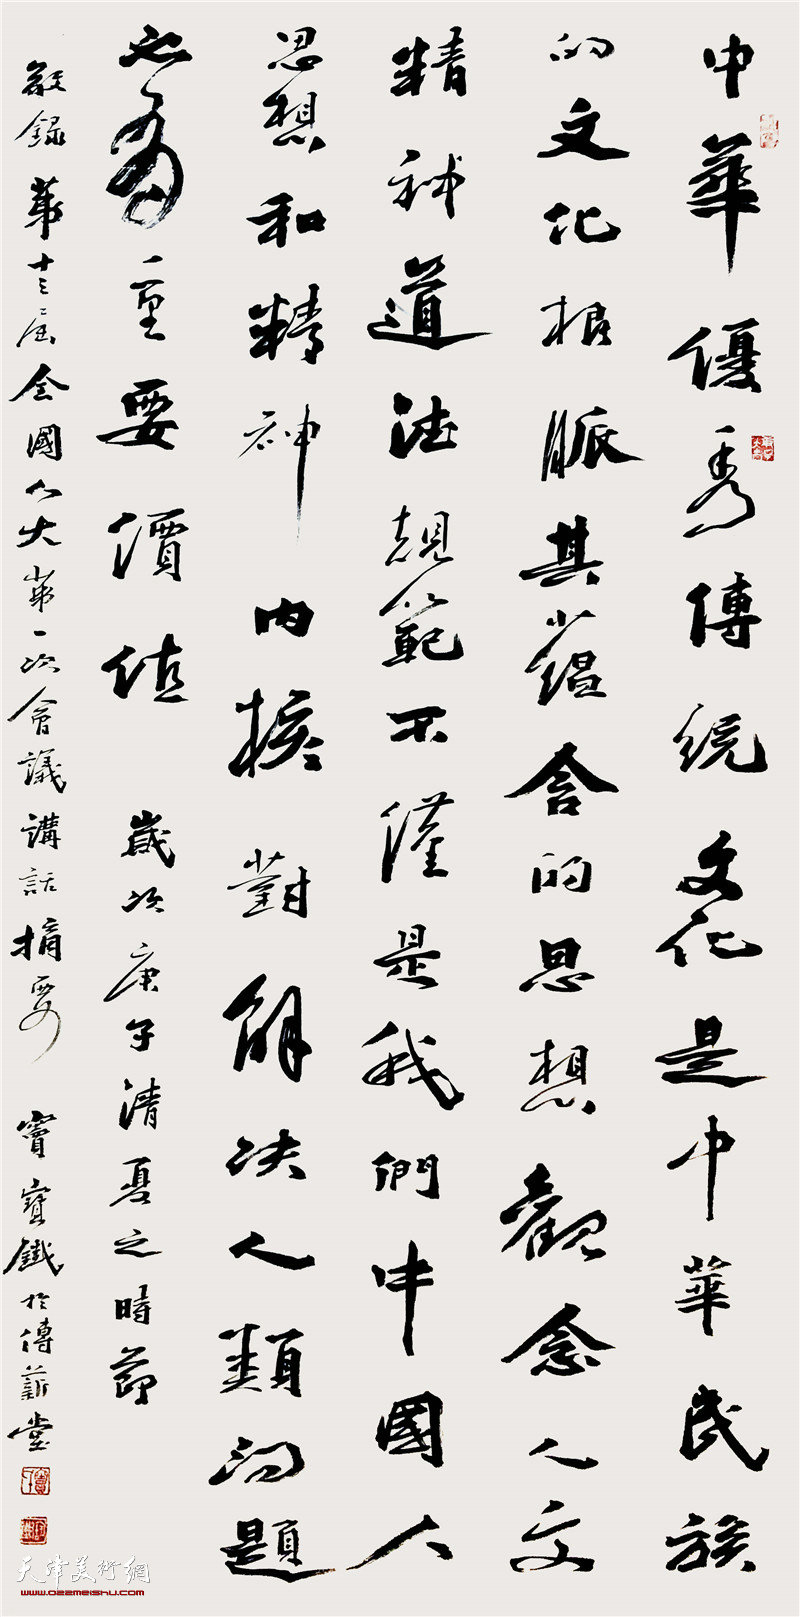 中華優秀傳統文化是中華民族
的文化根脈其蘊含的思想觀念人文
精神道法規範不僅是我們中國人
思想和精神内核對解決人類問題
也有重要價值 歲次庚子清夏之時節
敬録第十三屆全國人大第一次會議講話摘要 竇寶鐵於傳薪堂
天津美術網
www.022meishu.com